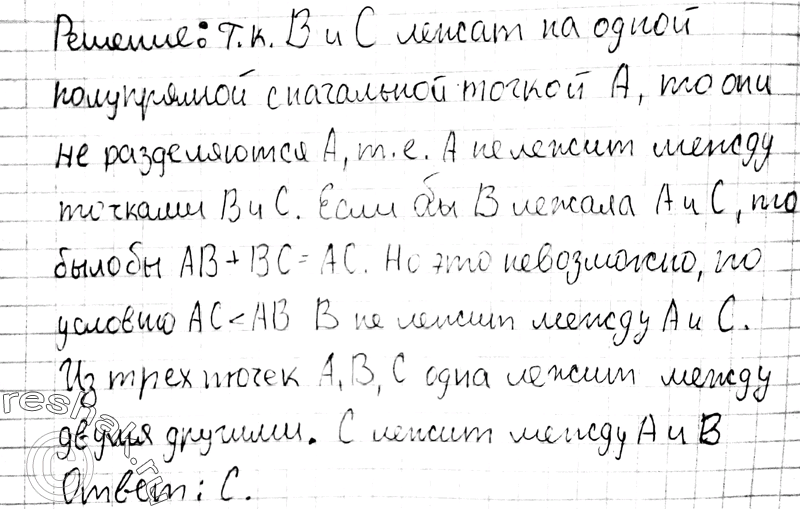 Решение: т.к. В и С лежат на одной
полупрямой с начальной точкой А, то они
не разделяются А, т.е. А не лежит между
точками В и С. Если бы В лежала А и С, то
было бы АВ + ВС = АС. Но это невозможно, по
условию АС < АВ В не лежит между А и С.
Из трех точек А, В, С одна лежит между
двумя другими. С лежит между А и В
Ответ: С.
reshak.ru